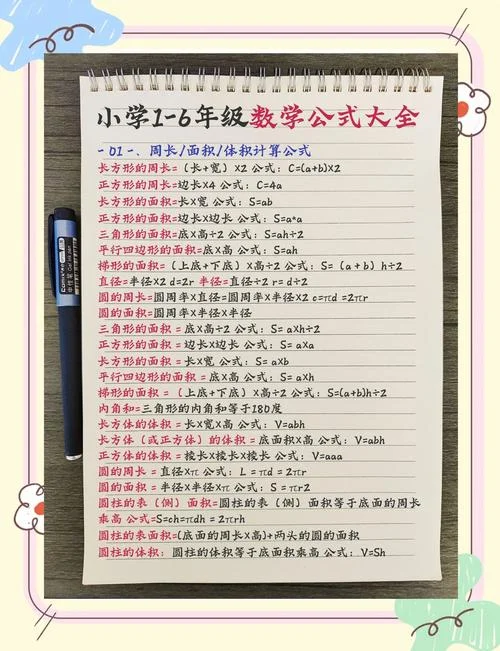 小学1-6年级数学公式大全
-01-、周长/面积/体积计算公式
长方形的周长=（长+宽）X2 公式：C=(a+b)X2
正方形的周长=边长X4 公式：C=4a
长方形的面积=长X宽 公式：S=ab
正方形的面积=边长X边长 公式：S=a*a
三角形的面积=底X高÷2 公式：S=ah÷2
平行四边形的面积=底X高 公式：S=ah
梯形的面积=（上底+下底）X高÷2 公式：S=（a+b）h÷2
直径=半径X2 d=2r 半径=直径÷2 r=d÷2
圆的周长=圆周率X直径=圆周率X半径X2 c=πd =2πr
圆的面积=圆周率X半径X半径
三角形的面积=底X高÷2 公式：S= aXh÷2
正方形的面积=边长X边长 公式：S= aXa
长方形的面积=长X宽 公式：S= aXb
平行四边形的面积=底X高 公式：S= aXh
梯形的面积=（上底+下底）X高÷2 公式：S=(a+b)h÷2
内角和=三角形的内角和等于180度
长方体的体积=长X宽X高 公式：V=abh
长方体（或正方体）的体积=底面积X高 公式：V=abh
正方体的体积=棱长X棱长X棱长 公式：V=aaa
圆的周长=直径Xπ 公式：L=πd=2πr
圆的面积=半径X半径Xπ 公式：S=πr2
圆柱的表（侧）面积=圆柱的表（侧）面积等于底面的周长
乘高 公式=S=ch=πdh=2πrh
圆柱的表面积=(底面的周长X高)+两头的圆的面积
圆柱的体积：圆柱的体积等于底面积乘高 公式：V=Sh